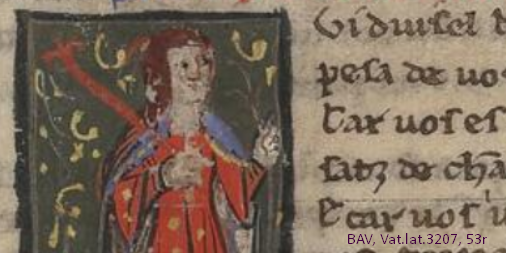 Viduisel
pesa de uo
Car uos es
satz de chā
E car uos u
BAV, Vat.lat.3207, 53r